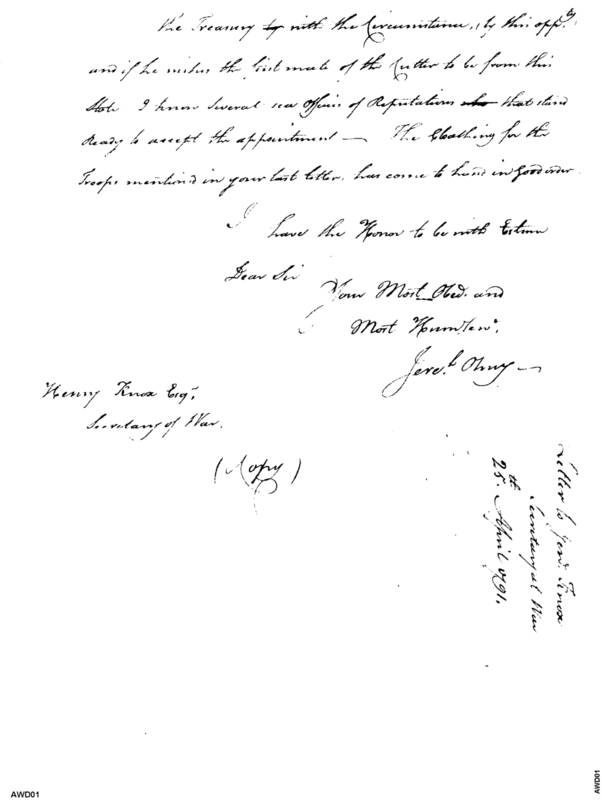 the Treasury by with the Circumstance, by this oppty.
and if he wishes the first mate of the Cutter to be from this
State I know several sea Officers of Reputations who that stand
Ready to accept the appointment — The Cloathing for the
Troops mentioned in your last letter, has come to hand in good order
I have the Honor to be with Esteem
Dear Sir
Your Most Obed. and
Most Hum Serv.
Jereh. Olney —
Henry Knox Esqr.
Secretary of War.
(Copy)
Letter to Genl. Knox
Secretary at War
25th April 1791.
AWD01
AWD01